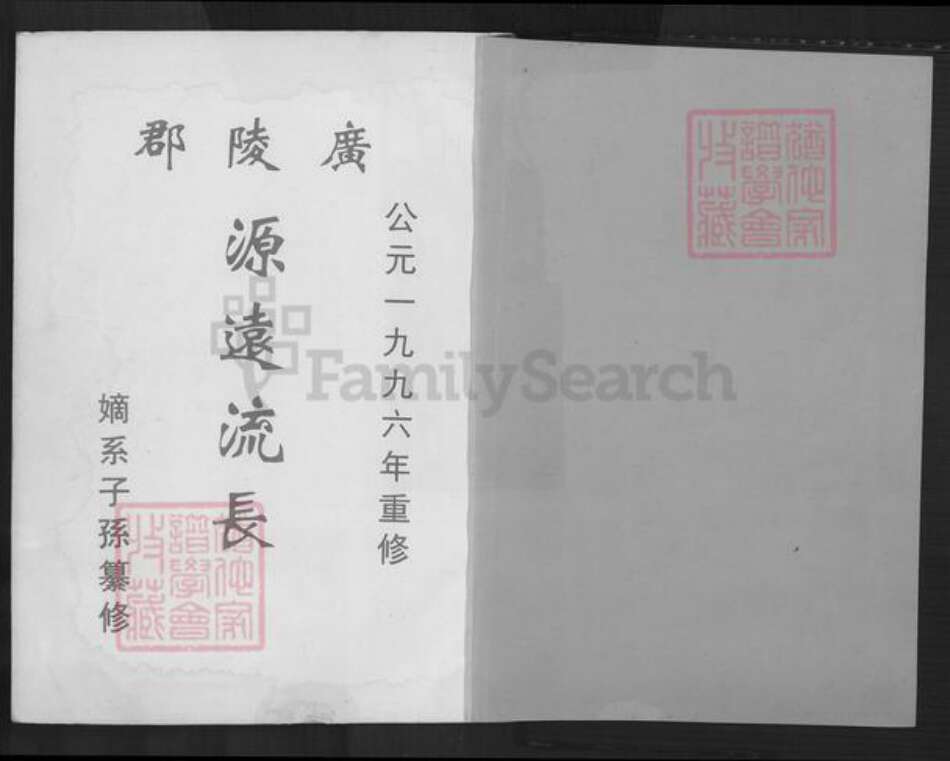 廣陵郡
公元一九九六年重修
源遠流長
嫡系子孫纂修
猶他家
譜學會
收藏
猶他家
譜學會
收藏
FamilySearch